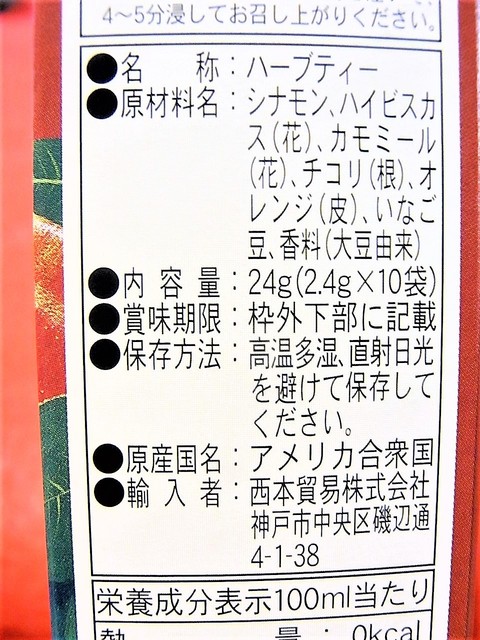 4～5分浸してお召し上がりください。
●名称：ハーブティー
●原材料名：シナモン、ハイビスカ
ス(花)、カモミール
(花)、チコリ(根)、オ
レンジ(皮)、いなご
豆、香料(大豆由来)
●内容量：24g(2.4g×10袋)
●賞味期限：枠外下部に記載
●保存方法：高温多湿、直射日光
を避けて保存して
ください。
●原産国名：アメリカ合衆国
●輸入者：西本貿易株式会社
神戸市中央区磯辺通
4-1-38
栄養成分表示100ml当たり
熱量：0kcal